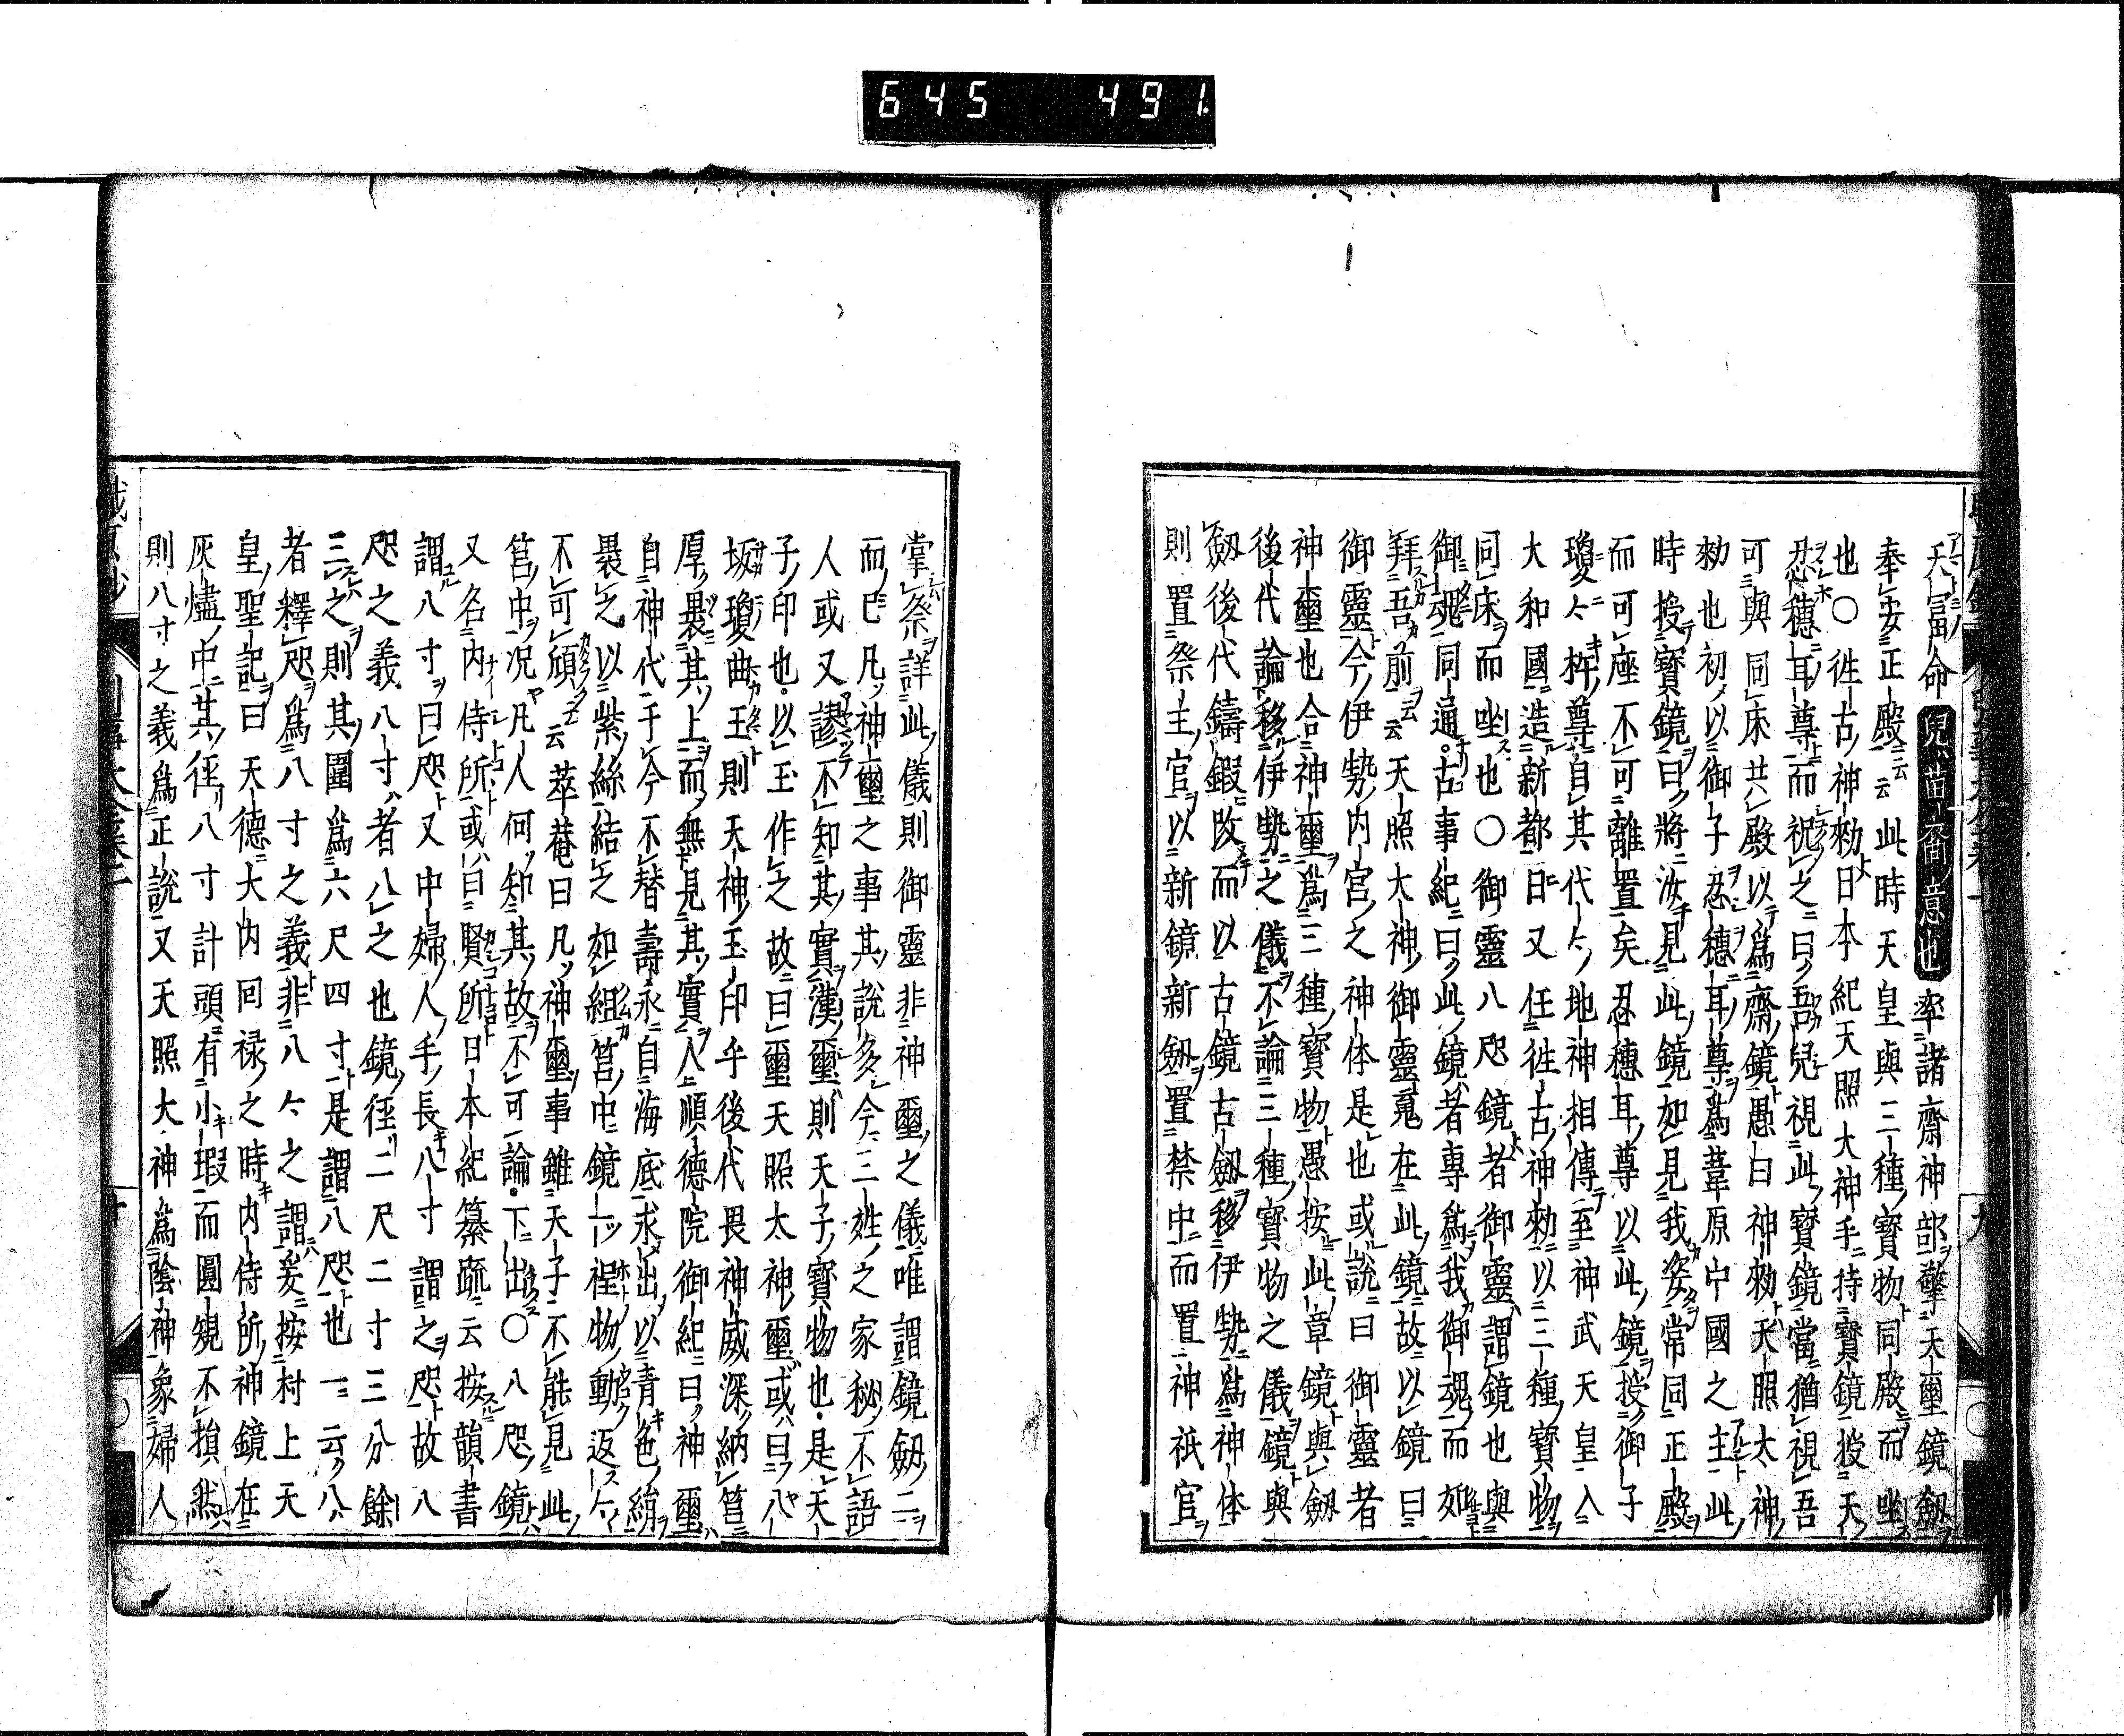 645 491
天富命兒苗裔意也率諸齋神部擎天璽鏡劔
奉安正殿云云此時天皇與三種寶物同殿而坐
也○徃古神勅日本紀天照大神手持寶鏡授天
忍穗耳尊而祝之曰吾兒視此寶鏡當猶視吾
可與同床共殿以爲齋鏡愚曰神勅天照太神
勅也初以御子忍穗耳尊爲葦原中國之主此
時授寶鏡曰將汝見此鏡如見我姿常同正殿
而可座不可離置矣忍穗耳尊以此鏡授御子
瓊々杵尊自其代々地神相傳至神武天皇入
大和國造新都日又任徃古神勅以三種寶物
同床而坐也○御靈八咫鏡者御靈謂鏡也與
御魂同通古事紀曰此鏡者專爲我御魂而如
拜吾前云云天照太神御靈䰟在此鏡故以鏡曰
御靈今伊勢内宮之神体是也或說曰御靈者
神璽也合神璽爲三種寶物愚按此章鏡與劔
後代論移伊勢之儀不論三種寶物之儀鏡與
劔後代鑄鍜改而以古鏡古劔移伊勢爲神体
則置祭主官以新鏡新劔置禁中而置神祇官
掌祭詳此儀則御靈非神璽之儀唯謂鏡劔二
而已凡神璽之事其說多今三姓之家秘不語
人或又謬不知其實漢璽則天子寶物也是天
子印也以玉作之故曰璽天照太神璽或曰八
坂瓊曲玉則天神玉印乎後代畏神威深納筥
厚裹其上而無見其實人順德院御紀曰神璽
自神代于今不替壽永自海底求出以青色絹
裹之以紫絲結之如組筥中鏡一ツ程物動返々
不可頎云云萃菴曰凡神璽事雖天子不能見此
筥中况凡人何知其故不可論下出○八咫鏡
又名内侍所或曰賢所日本紀纂疏云按韻書
謂八寸曰咫又中婦人手長八寸謂之咫故八
咫之義八寸者八之也鏡徑二尺二寸三分餘
三之則其圍爲六尺四寸是謂八咫也一云八
者釋咫爲八寸之義非八々之謂妥按村上天
皇聖記曰天德大内回禄之時内侍所神鏡在
灰燼中其徑八寸計頭有小瑕而圓䂓不損然
則八寸之義爲正說又天照大神爲陰神象婦人